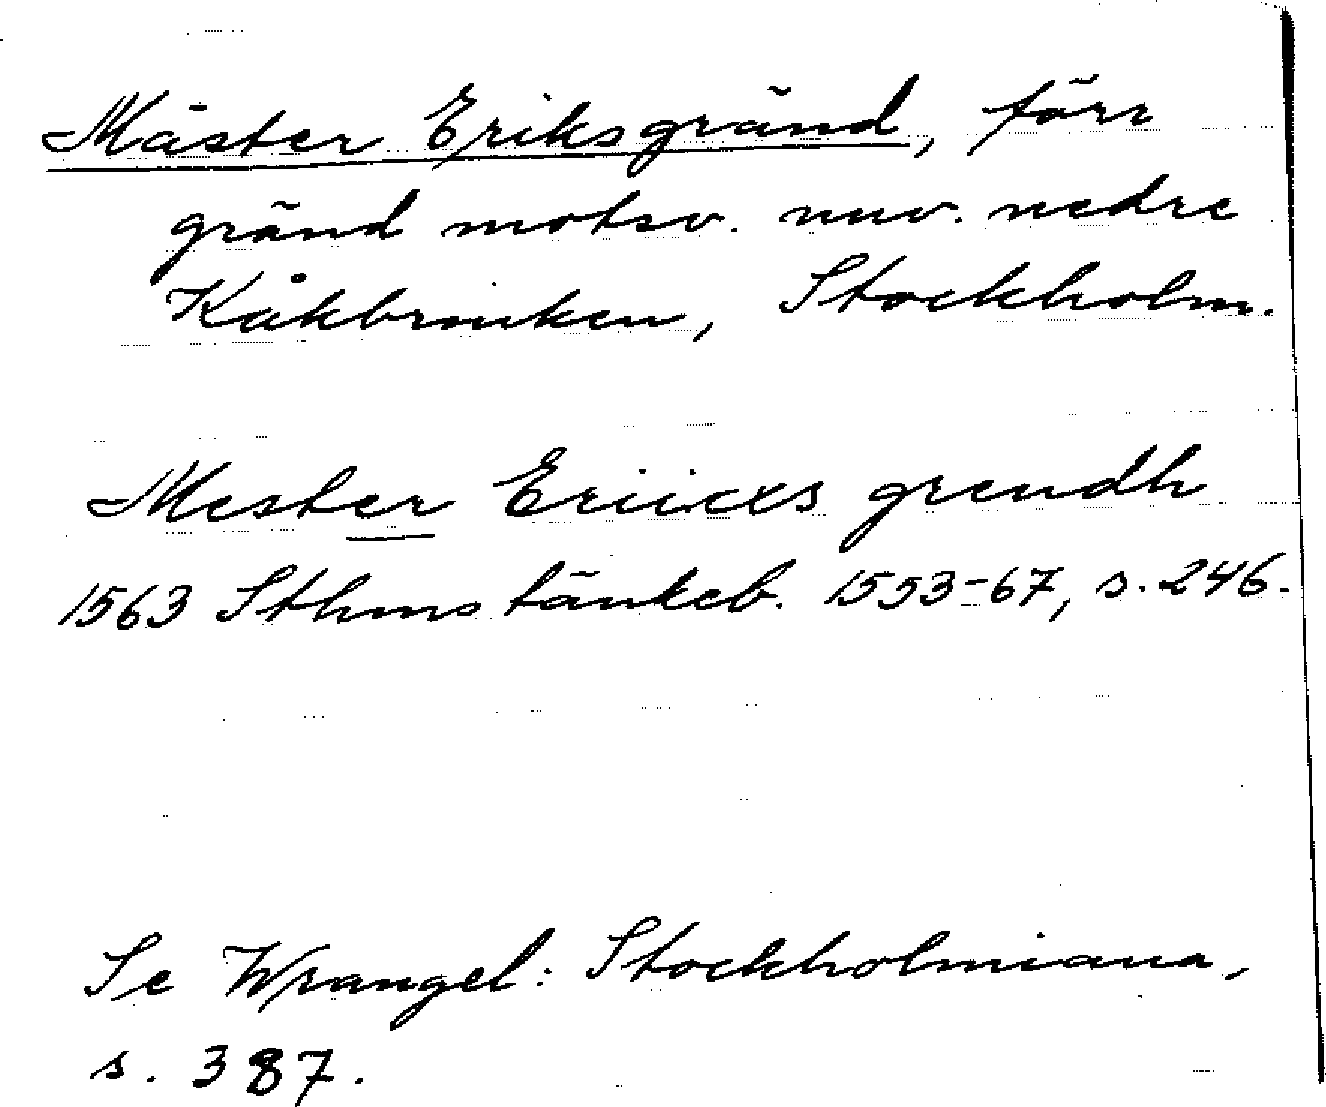 Mäster Eriksgränd, förr
gränd motsv. nuv. nedre
Kåkbrinken, Stockholm.
Mester Eriicxs grendh
1563 Sthms tänkeb. 1553-67, s. 246.
Se Wrangel: Stockholmiana,
s. 387.